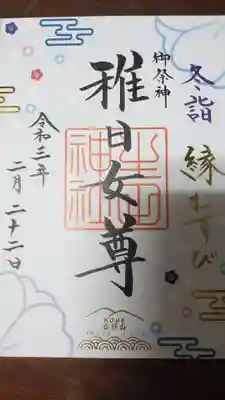 冬詣
縁むすび
御祭神
稚日女尊
生田神社
令和三年
二月二十二日
KOBE